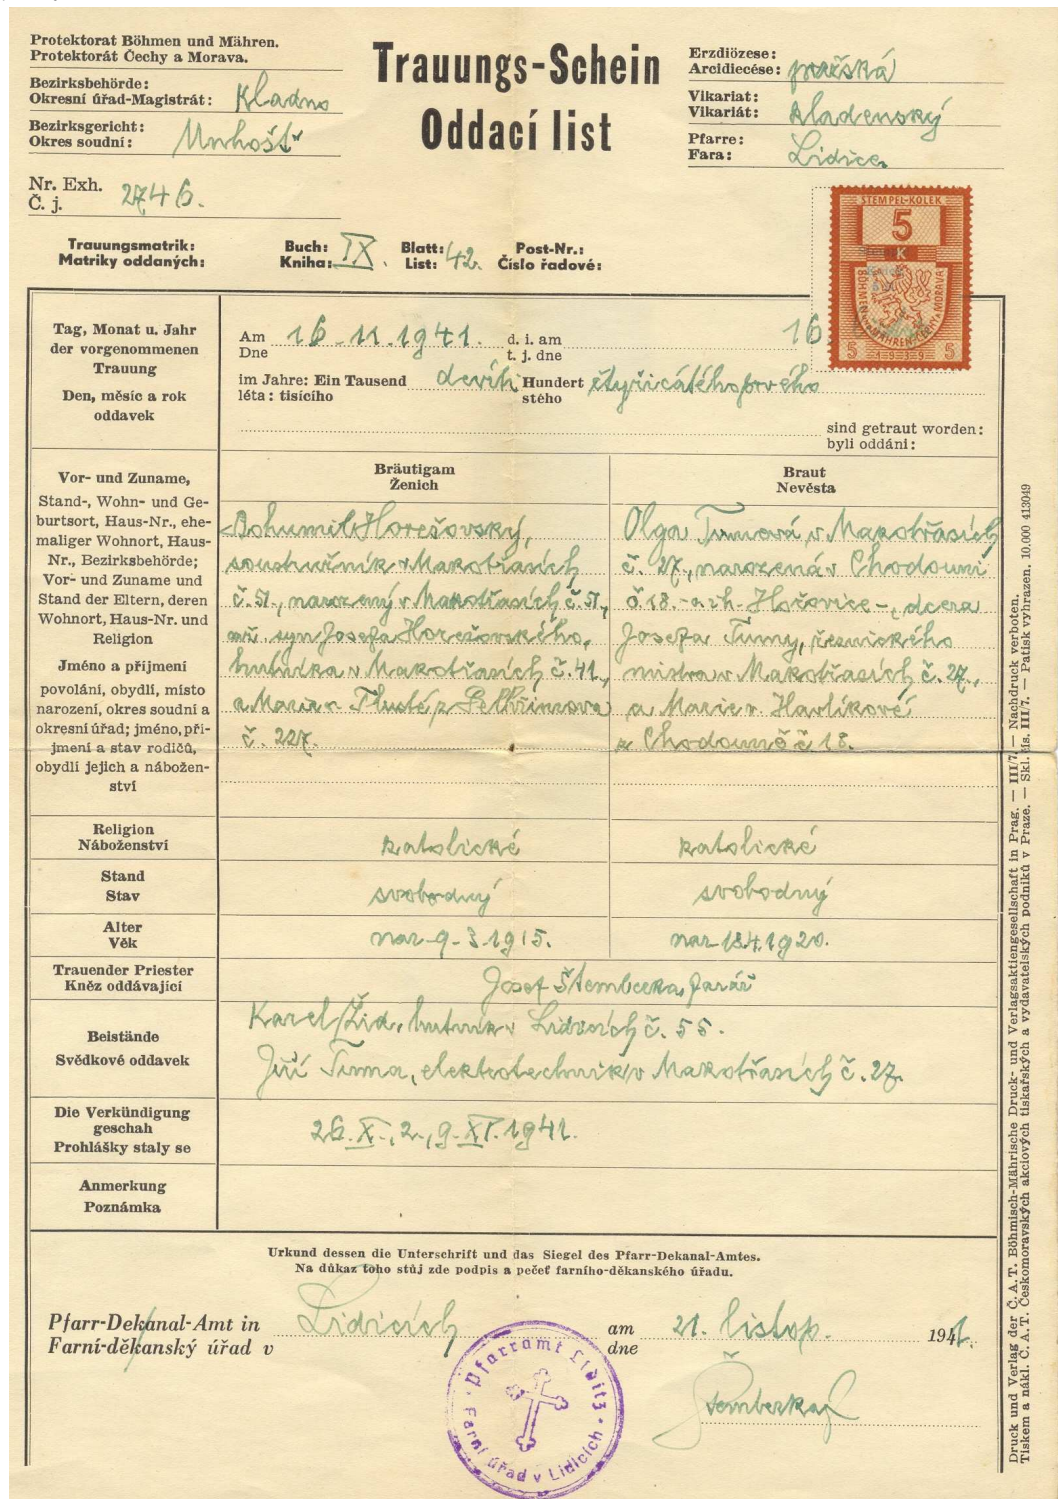 Protektorat Böhmen und Mähren.
Protektorát Čechy a Morava.
Bezirksbehörde:
Okresní úřad-Magistrát: Kladno
Bezirksgericht:
Okres soudní: Unhošť
Nr. Exh.
Č. j. 2746.
Trauungs-Schein
Oddací list
Erzdiözese:
Arcidiecése: pražská
Vikariat:
Vikariát: kladenský
Pfarre:
Fara: Lidice
STEMPEL-KOLEK
5
K
BÖHMEN u. MÄHREN ČECHY a MORAVA
5 -1939- 5
Trauungsmatrik: Buch: Blatt: Post-Nr.:
Matriky oddaných: Kniha: IX. List: 42. Číslo řadové:
Tag, Monat u. Jahr
der vorgenommenen
Trauung
Den, měsíc a rok
oddavek
Am 16.-11.1941. d. i. am 16
Dne t. j. dne
im Jahre: Ein Tausend devíti Hundert čtyřicátéhoprvého
léta: tisícího stého
sind getraut worden:
byli oddáni:
Vor- und Zuname,
Stand-, Wohn- und Ge-
burtsort, Haus-Nr., ehe-
maliger Wohnort, Haus-
Nr., Bezirksbehörde;
Vor- und Zuname und
Stand der Eltern, deren
Wohnort, Haus-Nr. und
Religion
Jméno a příjmení
povolání, obydlí, místo
narození, okres soudní a
okresní úřad; jméno, pří-
jmení a stav rodičů,
obydlí jejich a nábožen-
ství
Bräutigam
Ženich
Bohumil Horešovský,
soustružník v Makotřasích
č. 51., narozený v Makotřasích č. 51.,
syn Josefa Horešovského,
hutníka v Makotřasích č. 41.,
a Marie r. Tlusté z Pelhřimova
č. 227.
Braut
Nevěsta
Olga Tumová, v Makotřasích
č. 27., narozená v Chodouni
č 18.- Hořovice-, dcera
Josefa Tumy, řeznického
mistra v Makotřasích č. 27.,
a Marie r. Havlíkové
z Chodouně č 18.
Religion
Náboženství
katolické katolické
Stand
Stav
svobodný svobodný
Alter
Věk
nar-9-3.1915. nar-18.4.1920.
Trauender Priester
Kněz oddávající
Josef Štemberka, farář
Beistände
Svědkové oddavek
Karel Žid, hutník v Lidicích č. 55.
Jiří Tuma, elektrotechnik v Makotřasích č. 27.
Die Verkündigung
geschah
Prohlášky staly se
26. X., 2., 9. XI. 1941.
Anmerkung
Poznámka
Urkund dessen die Unterschrift und das Siegel des Pfarr-Dekanal-Amtes.
Na důkaz toho stůj zde podpis a pečeť farního-děkanského úřadu.
Pfarr-Dekanal-Amt in am
Farní-děkanský úřad v Lidicích dne 21. listop. 1941.
Pfarramt Liditz
Farní úřad v Lidicích
Štemberka
Druck und Verlag der Č. A. T. Böhmisch-Mährische Druck- und Verlagsaktiengesellschaft in Prag. — III/7. — Nachdruck verboten.
Tiskem a nákl. Č. A. T. Českomoravských akciových tiskařských a vydavatelských podniků v Praze. — Skl. čís. III/7. — Patisk vyhrazen. 10.000 413049